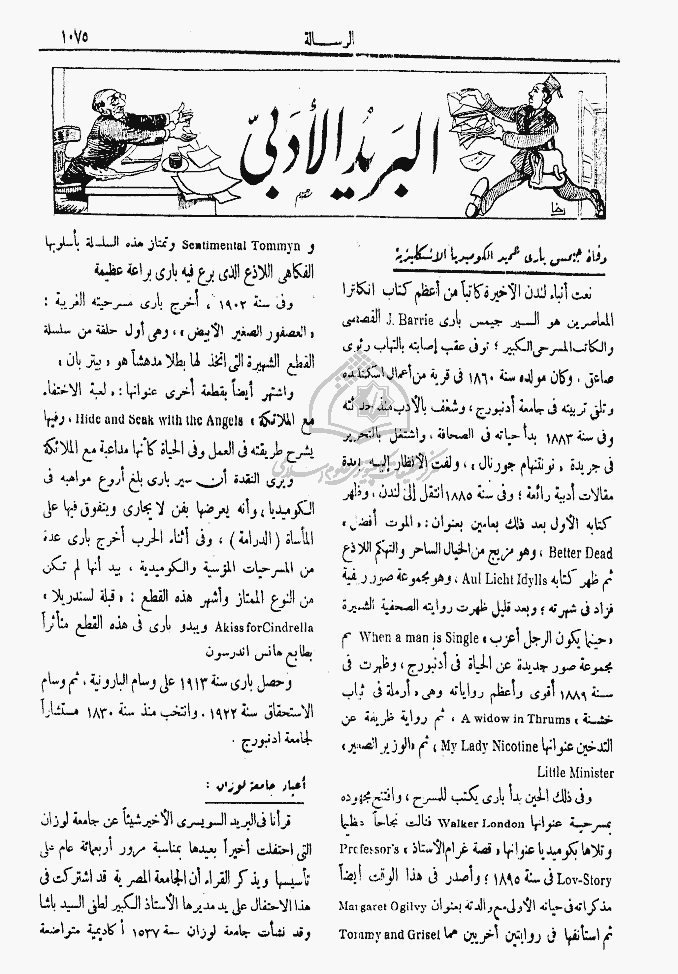 الرسالة
١٠٧٥
البريد الأدبي
وفاة جيمس بارى عميد الكوميديا الانكليزية
نعت أنباء لندن الأخيرة كاتباً من أعظم كتاب انكلترا
المعاصرين هو السير جيمس بارى J. Barrie القصصى
والكاتب المسرحى الكبير ؛ توفى عقب إصابته بالتهاب رئوى
صاعق . وكان مولده سنة ١٨٦٠ فى قرية من أعمال اسكتلنده
وتلقى تربيته فى جامعة أدنبورج ، وشغف بالأدب منذ حداثته
وفى سنة ١٨٨٣ بدأ حياته فى الصحافة ، واشتغل بالتحرير
فى جريدة « نوتنهام جورنال » ، ولفت الأنظار إليه بعدة
مقالات أدبية رائعة ؛ وفى سنة ١٨٨٥ انتقل إلى لندن ، وظهر
كتابه الأول بعد ذلك بعامين بعنوان : « الموت أفضل »
Better Dead ، وهو مزيج من الخيال الساحر والتهكم اللاذع
ثم ظهر كتابه Aul Licht Idylls ، وهو مجموعة صور ريفية
فزاد فى شهرته ؛ وبعد قليل ظهرت روايته الصحفية الشهيرة
« حينما يكون الرجل أعزب » When a man is Single ثم
مجموعة صور جديدة عن الحياة فى أدنبورج ، وظهرت فى
سنة ١٨٨٩ أقوى وأعظم رواياته وهى « أرملة فى ثياب
خشنة » A widow in Thrums ، ثم رواية ظريفة عن
التدخين عنوانها My Lady Nicotine ، ثم « الوزير الصغير »
Little Minister
وفى ذلك الحين بدأ بارى يكتب للمسرح ، وافتتح مجهوده
بمسرحية عنوانها Walker London فنالت نجاحاً عظيما
وتلاها بكوميديا عنوانها « قصة غرام الأستاذ » Professor's
Lov-Story فى سنة ١٨٩٥ ؛ وأصدر فى هذا الوقت أيضاً
مذكراته فى حياته الأولى مع والدته بعنوان Margaret Ogilvy
ثم استأنفها فى روايتين أخريين هما Tommy and Grisel
و Sentimental Tommyn وتمتاز هذه السلسلة بأسلوبها
الفكاهى اللاذع الذى برع فيه بارى براعة عظيمة
وفى سنة ١٩٠٢ ، أخرج بارى مسرحيته الغريبة :
« العصفور الصغير الأبيض » ، وهى أول حلقة من سلسلة
القطع الشهيرة التى اتخذ لها بطلا مدهشاً هو « بيتر بان »
واشتهر أيضاً بقطعة أخرى عنوانها : « لعبة الاختفاء
مع الملائكة » Hide and Seak with the Angels ، وفيها
يشرح طريقته فى العمل وفى الحياة كأنها مداعبة مع الملائكة
ويرى النقدة أن سير بارى بلغ أروع مواهبه فى
الكوميديا ، وأنه يعرضها بفن لا يجارى ويتفوق فيها على
المأساة ( الدرامة ) ، وفى أثناء الحرب أخرج بارى عدة
من المسرحيات المؤسية والكوميدية ، بيد أنها لم تكن
من النوع الممتاز وأشهر هذه القطع : « قبلة لسندريلا »
Akiss for Cindrella ويبدو بارى فى هذه القطع متأثراً
بطابع هانس اندرسون
وحصل بارى سنة ١٩١٣ على وسام البارونية ، ثم وسام
الاستحقاق سنة ١٩٢٢ . وانتخب منذ سنة ١٨٣٠ مستشاراً
لجامعة ادنبورج .
أخبار جامعة لوزان :
قرأنا فى البريد السويسرى الأخير شيئاً عن جامعة لوزان
التى احتفلت أخيراً بعيدها بمناسبة مرور أربعمائة عام على
تأسيسها ويذكر القراء أن الجامعة المصرية قد اشتركت فى
هذا الاحتفال على يد مديرها الأستاذ الكبير لطفى السيد باشا
وقد نشأت جامعة لوزان سنة ١٥٣٧ أكاديمية متواضعة